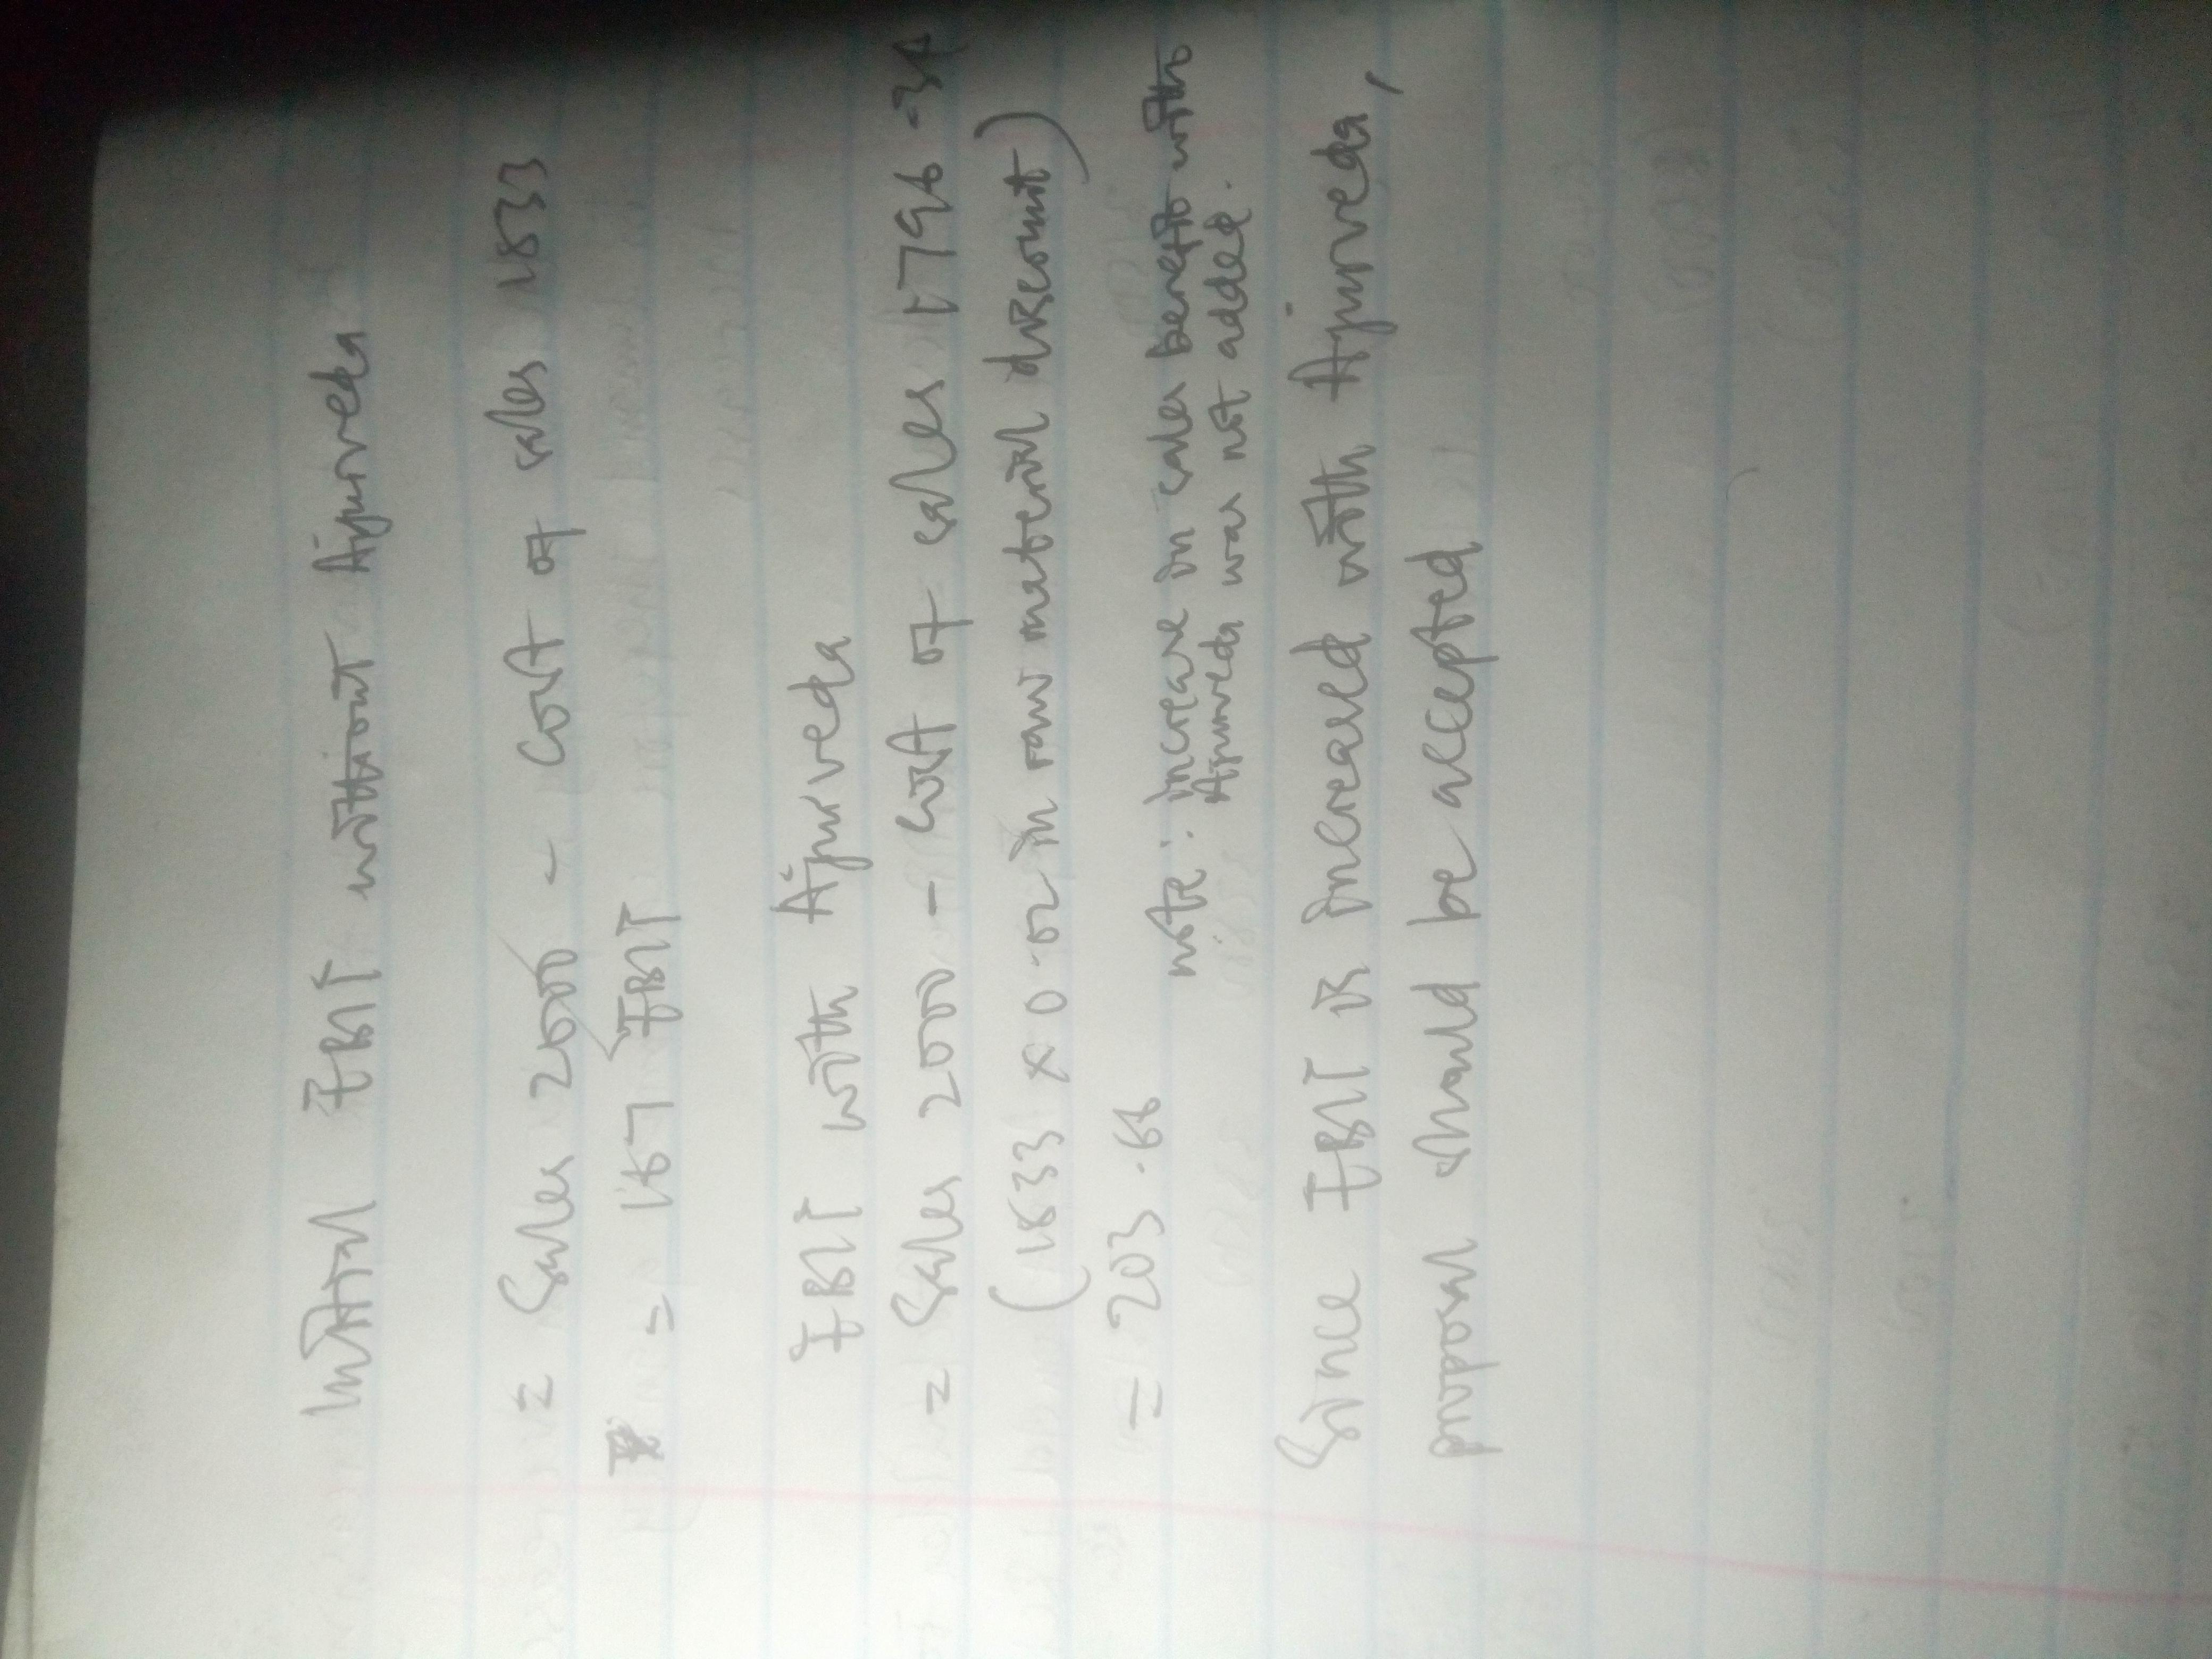 Initial EBIT without Ajurveda
= Sales 2000 - Cost of sales 1833
= 167 EBIT
EBIT with Ajurveda
= Sales 2000 - Cost of sales 1796.34
(1833 x 0.02 in raw material discount)
= 203.66
note: increase in sales benefits with
Ajurveda was not added.
Since EBIT is increased with Ajurveda,
proposal should be accepted